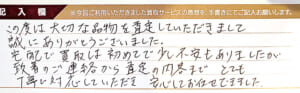 記入欄 ※今回ご利用いただきました買取サービスの感想を、手書きにてご記入お願いします。
この度は大切な品物を査定していただきまして
誠にありがとうございました。
宅配で買取は初めてで少し不安もありましたが
到着のご連絡から査定の内容まで とても
丁寧に対応していただき 安心してお任せできました。